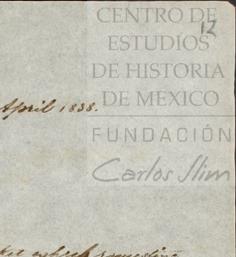 CENTRO DE
12
ESTUDIOS
DE HISTORIA
DE MEXICO
April 1838.
FUNDACIÓN
Carlos Slim
which